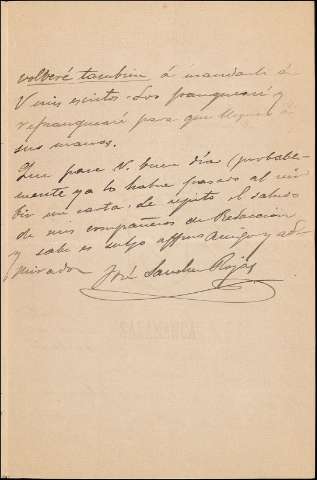 volveré también á mandarle á
V mis escritos. Los franquearé y
refranquearé para que lleguen á
sus manos.
Que pase V. buen día (probable-
mente ya lo habrá pasado al reci-
bir mi carta. Le repito el saludo
de mis compañeros de Redacción
y sabe es suyo affmo amigo y ad-
mirador
José Sánchez Rojas